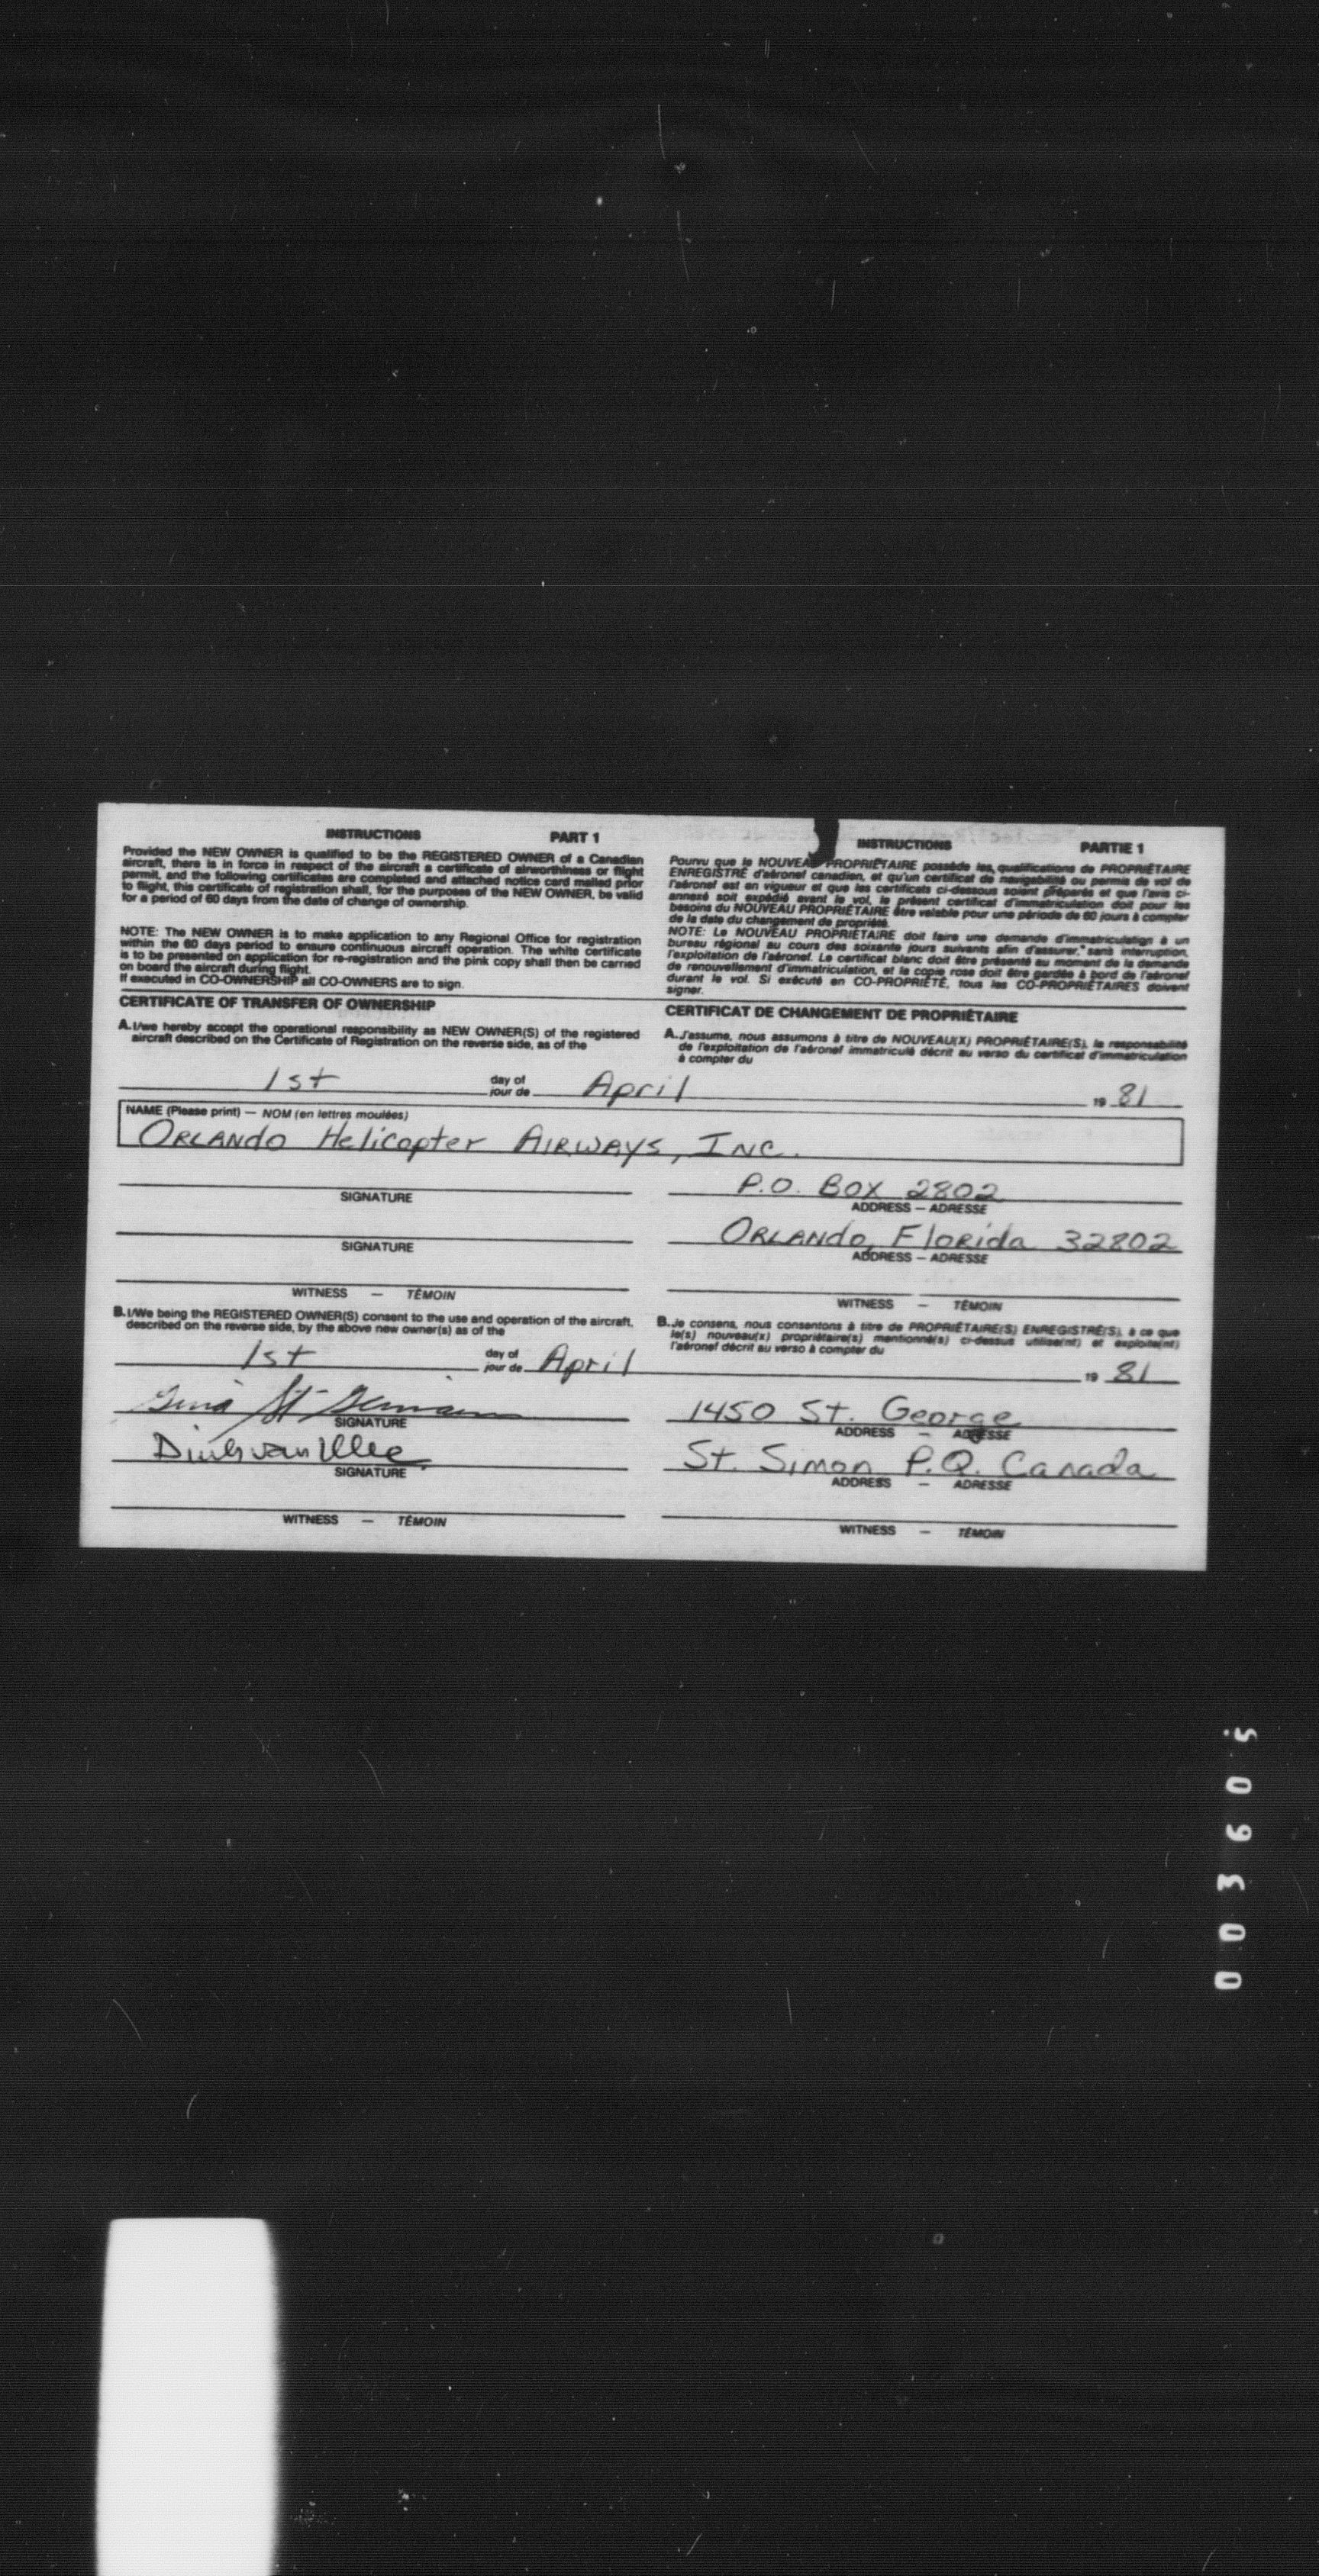 INSTRUCTIONS PART 1
Provided the NEW OWNER is qualified to be the REGISTERED OWNER of a Canadian
aircraft, there is in force in respect of the aircraft a certificate of airworthiness or flight
permit, and the following certificates are completed and attached notice card mailed prior
to flight, this certificate of registration shall, for the purposes of the NEW OWNER, be valid
for a period of 60 days from the date of change of ownership.
NOTE: The NEW OWNER is to make application to any Regional Office for registration
within the 60 days period to ensure continuous aircraft operation. The white certificate
is to be presented on application for re-registration and the pink copy shall then be carried
on board the aircraft during flight.
If executed in CO-OWNERSHIP all CO-OWNERS are to sign.
INSTRUCTIONS PARTIE 1
Pourvu que le NOUVEAU PROPRIÉTAIRE possède les qualifications de PROPRIÉTAIRE
ENREGISTRÉ d'aéronef canadien, et qu'un certificat de navigabilité ou permis de vol de
l'aéronef est en vigueur et que les certificats ci-dessous soient préparés et que l'avis ci-
annexé soit expédié avant le vol, le présent certificat d'immatriculation doit pour les
besoins du NOUVEAU PROPRIÉTAIRE être valable pour une période de 60 jours à compter
de la date du changement de propriété.
NOTE: Le NOUVEAU PROPRIÉTAIRE doit faire une demande d'immatriculation à un
bureau régional au cours des soixante jours suivants afin d'assurer, sans interruption,
l'exploitation de l'aéronef. Le certificat blanc doit être présenté au moment de la demande
de renouvellement d'immatriculation, et la copie rose doit être gardée à bord de l'aéronef
durant le vol. Si exécuté en CO-PROPRIÉTÉ, tous les CO-PROPRIÉTAIRES doivent
signer.
CERTIFICATE OF TRANSFER OF OWNERSHIP
A. I/we hereby accept the operational responsibility as NEW OWNER(S) of the registered
aircraft described on the Certificate of Registration on the reverse side, as of the
CERTIFICAT DE CHANGEMENT DE PROPRIÉTAIRE
A. J'assume, nous assumons à titre de NOUVEAU(X) PROPRIÉTAIRE(S), la responsabilité
de l'exploitation de l'aéronef immatriculé décrit au verso du certificat d'immatriculation
à compter du
1st day of jour de April 19 81
NAME (Please print) — NOM (en lettres moulées)
ORLANDO Helicopter AIRWAYS, INC.
SIGNATURE
P.O. BOX 2802
ADDRESS — ADRESSE
SIGNATURE
ORLANDO, Florida 32802
ADDRESS — ADRESSE
WITNESS — TÉMOIN
WITNESS — TÉMOIN
B. I/We being the REGISTERED OWNER(S) consent to the use and operation of the aircraft,
described on the reverse side, by the above new owner(s) as of the
B. Je consens, nous consentons à titre de PROPRIÉTAIRE(S) ENREGISTRÉ(S), à ce que
le(s) nouveau(x) propriétaire(s) mentionné(s) ci-dessus utilise(nt) et exploite(nt)
l'aéronef décrit au verso à compter du
1st day of jour de April 19 81
St-Germain
SIGNATURE
1450 St. George
ADDRESS — ADRESSE
van
SIGNATURE
St. Simon P.Q. Canada
ADDRESS — ADRESSE
WITNESS — TÉMOIN
WITNESS — TÉMOIN
003605